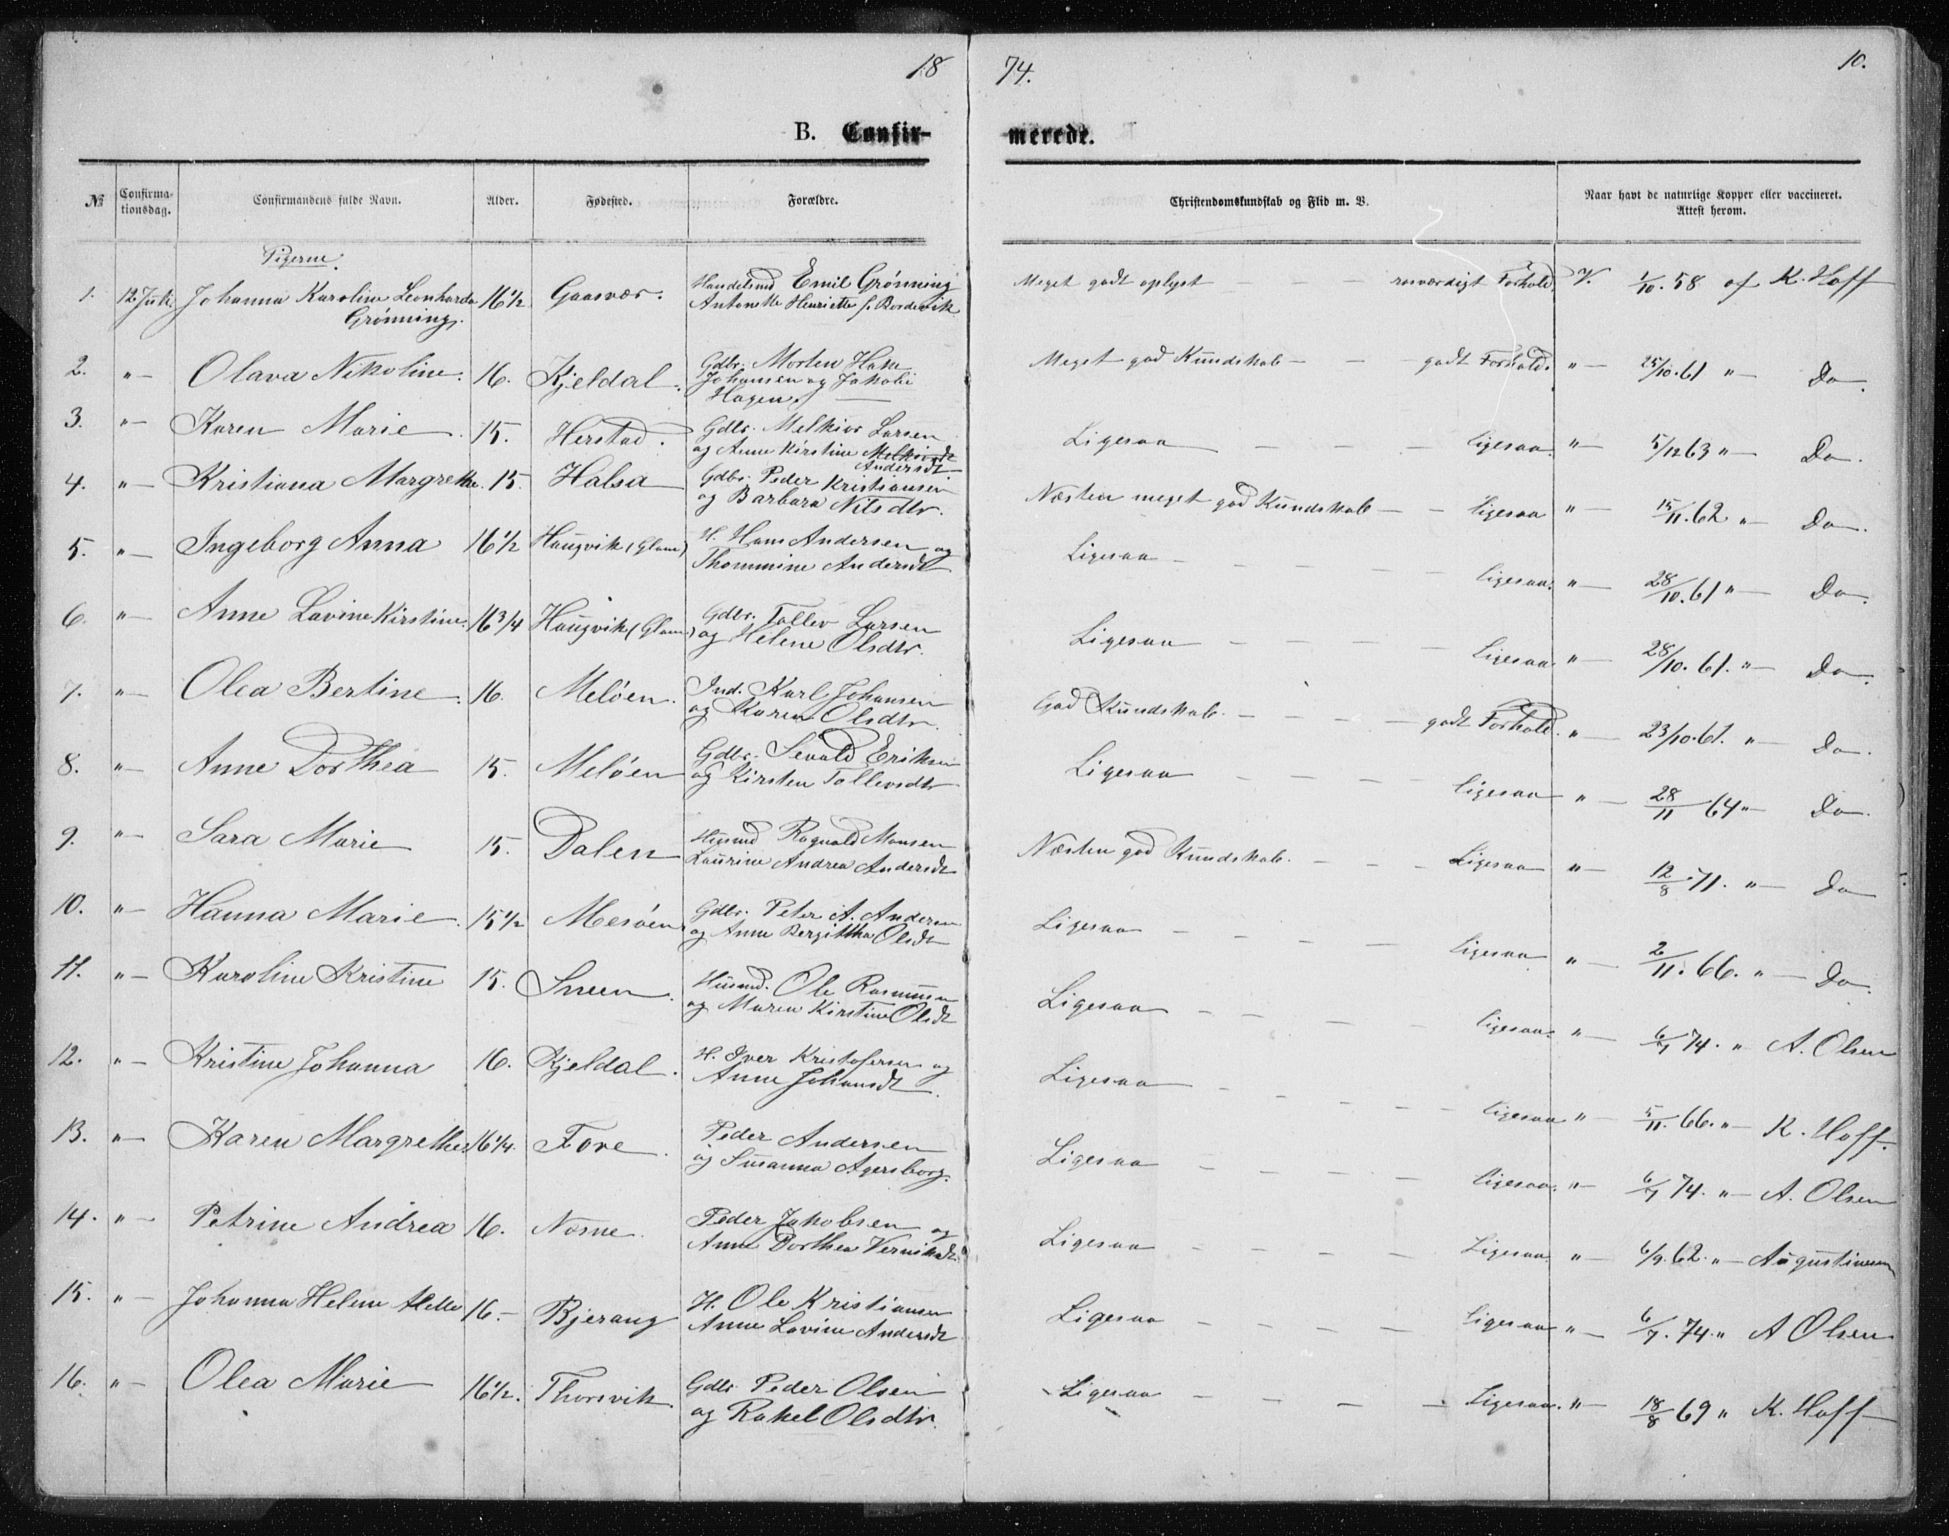 18 74. 10.
B. Confir- merede.
№ Confirma- tionsdag. Confirmandens fulde Navn. Alder. Fødested. Forældre. Christendomskundskab og Flid m. V. Naar havt de naturlige Kopper eller vaccineret. Attest herom.
Pigerne.
1. 12 Juli Johanna Karoline Leonharda 16½ Gaasvær. Handelsmd Emil Grønning Meget godt oplyst – – – rosværdigt Forhold. V. 1/10. 58 af K. Hoff
Grønning. Antonette Henriette f. Bordevik
2. " – Olava Nikoline. 16. Kjeldal. Gdbr. Morten Hake Meget god Kundskab – – – godt Forhold. " – 25/10. 61 " – Do.
Johansen og Jakobi
Hagen
3. " – Karen Marie 15. Herstad. Gdbr. Melkior Larsen Ligesaa – – – ligesaa. " – 5/12 63 " – Do.
og Anne Kirstine Melkiorsdt
Andersdt
4. " – Kristiana Margrethe. 15. Halsa Gdbr. Peder Kristiansen Næsten meget god Kundskab – – ligesaa " – 15/11. 62 " – Do.
og Barbara Nilsdtr.
5. " – Ingeborg Anna 16½ Haugvik (Glom) H. Hans Andersen og Ligesaa – – – ligesaa. " – 28/10. 61 " – Do.
Thommine Andersdt
6. " – Anne Lavine Kirstine. 16¾ Haugvik (Glom) Gdbr. Tollev Larsen Ligesaa – – – ligesaa " – 28/10. 61. " – Do.
og Helene Olsdtr.
7. " – Olea Bertine. 16. Meløen. Ind. Karl Johansen God Kundskab. – – – godt Forhold. " – 23/10. 61. " – Do.
og Karen Olsdtr.
8. " – Anne Dorthea 15. Meløen Gdbr. Sevald Eriksen Ligesaa – – – ligesaa " – 28/11 64 " – Do.
og Kirsten Tollevsdtr
9. " – Sara Marie 15. Dalen Husmd Ragnvald Monsen Næsten god Kundskab. – – – Ligesaa " – 12/8. 71. " – Do
Laurine Andrea Andersdt
10. " – Hanna Marie. 15½ Mesøen Gdbr. Peter A. Andersen Ligesaa – – – ligesaa " – 2/11. 66. " – Do.
og Anne Bergittha Olsdt
11. " – Karoline Kristine 15. Sneen. Husmd. Ole Rasmussen Ligesaa – – – ligesaa " – 6/7 74. " A. Olsen
og Maren Kirstine Olsdt
12. " – Kristine Johanna 16. Kjeldal. H. Iver Kristofersen og Ligesaa – – – ligesaa " – 5/11. 66. " – K. Hoff.
Anne Johansdt.
13. " – Karen Margrethe 16¼. Fore. Peder Andersen Ligesaa – – – ligesaa. " – 6/7 74. " – A. Olsen
og Susanna Agersborg.
14. " – Petrine Andrea 16. Nosne. Peder Jakobsen og Ligesaa – – – Ligesaa. " – 6/9. 62. " – Augustinussen
Anne Dorthea
15. " – Johanna Helene 16 – Bjerang H. Ole Kristiansen Ligesaa – – – ligesaa " – 6/7. 74. " A Olsen
Anne Lovine Andersdt
16. " – Olea Marie 16½. Thorsvik. Gdbr Peder Olsen Ligesaa – – – Ligesaa. " – 18/8 69 " K. Hoff
og Rakel Olsdtr.